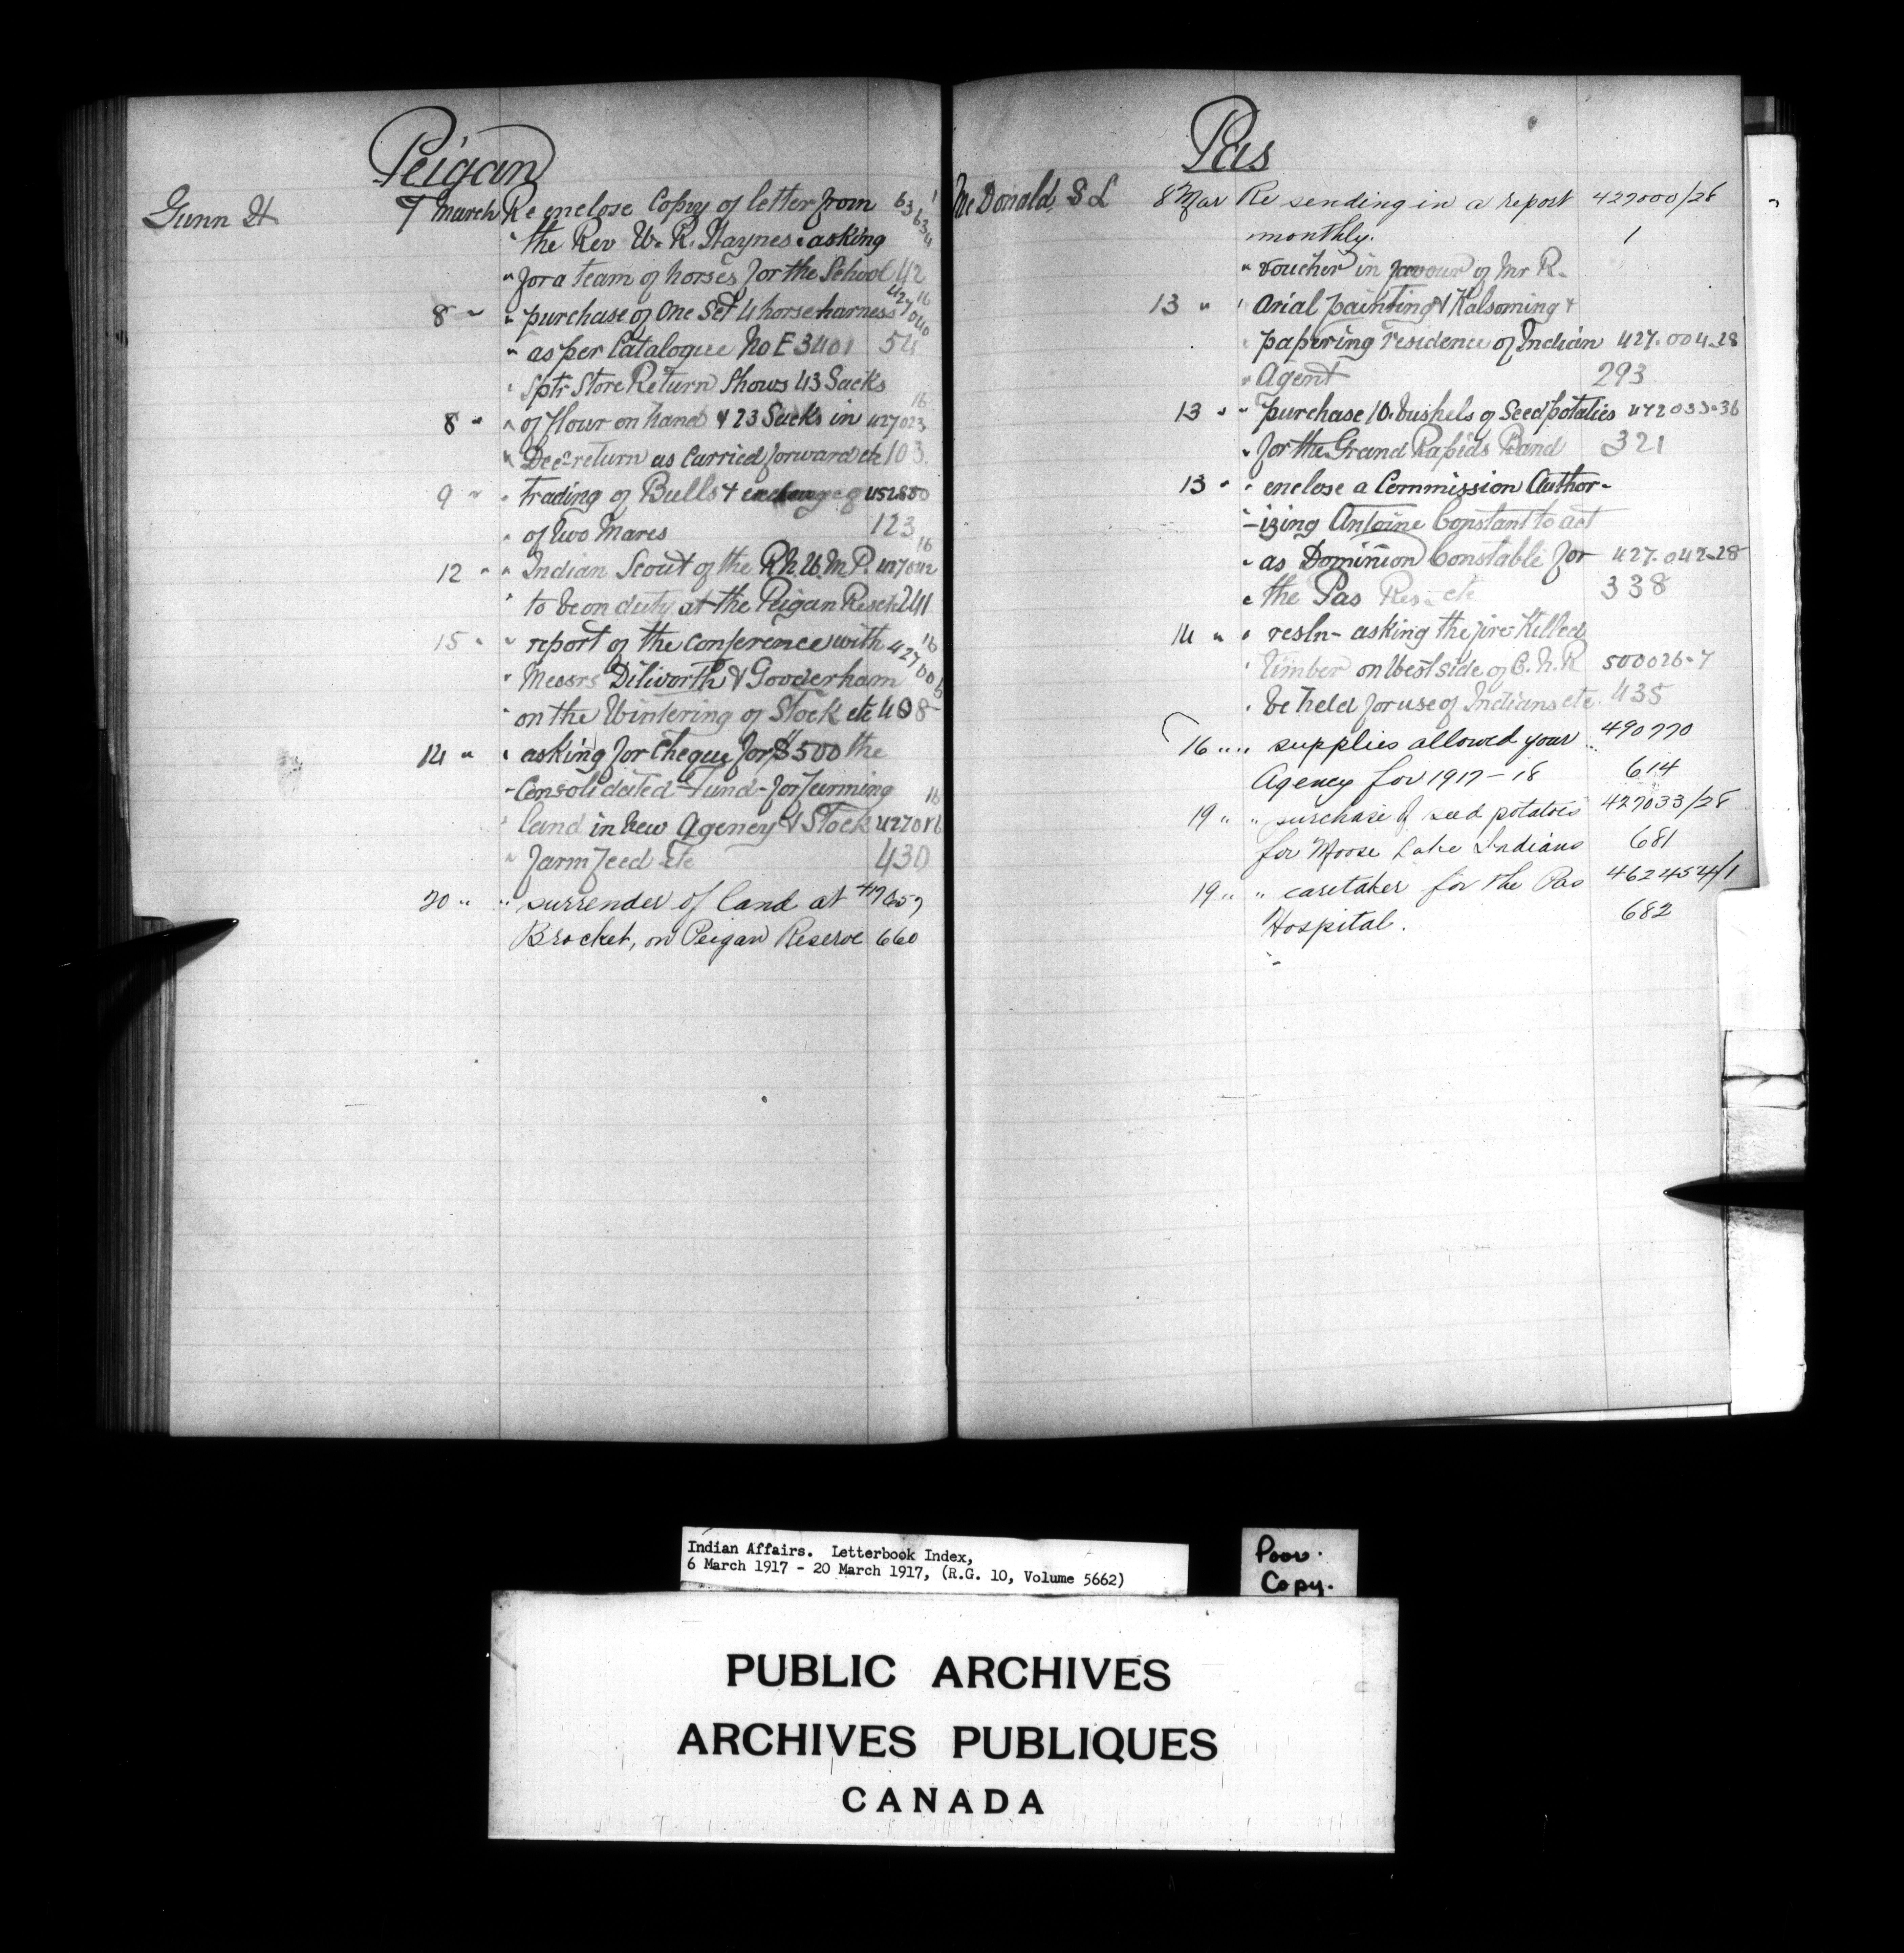 Peigan
Gunn H 7 March Re enclose Copy of letter from 63634/1
" the Rev W. R. Haynes asking
" for a team of horses for the School 42
8 " " purchase of One Set 4 horse harness 427040/16
" as per Catalogue No E 3401 54
" Sptr Store Return Shows 43 Sacks
8 " " of flour on hand & 23 Sacks in 427023/16
" Decr return as Carried forward etc 103
9 " " trading of Bulls & exchange of 452880
" of two Mares 123
12 " " Indian Scout of the R.N.W.M.P. 427042/16
" to be on duty at the Peigan Reserve 241
15 " " report of the conference with 427001/16
" Messrs Dilworth & Gooderham
" on the Wintering of Stock etc 408
14 " " asking for Cheque for $500 the
" Consolidated Fund - for farming
" land in new Agency & Stock 427016/16
" farm feed etc 430
20 " " surrender of land at
Brocket, on Peigan Reserve 660
Pas
McDonald S L 8 Mar Re sending in a report 427000/28
monthly. 1
" voucher in favour of Mr R.
13 " " Arial painting & Kalsoming &
" papering residence of Indian 427.004-28
" Agent 293
13 " " purchase 10. bushels of Seed potaties 472033-36
" for the Grand Rapids Band 321
13 " " enclose a Commission Author-
"-izing Antoine Constant to act
" as Dominion Constable for 427.042-28
" the Pas Res. etc 338
14 " " resln - asking the fire Killed
" timber on West side of C.N.R 500026-7
" be held for use of Indians etc. 435
16 " " supplies allowed your 490770
Agency for 1917-18 614
19 " " purchase of seed potatoes 427033/28
for Moose Lake Indians 681
19 " " caretaker for the Pas 462454/1
Hospital. 682
Indian Affairs. Letterbook Index,
6 March 1917 - 20 March 1917, (R.G. 10, Volume 5662)
Poor.
Copy.
PUBLIC ARCHIVES
ARCHIVES PUBLIQUES
CANADA